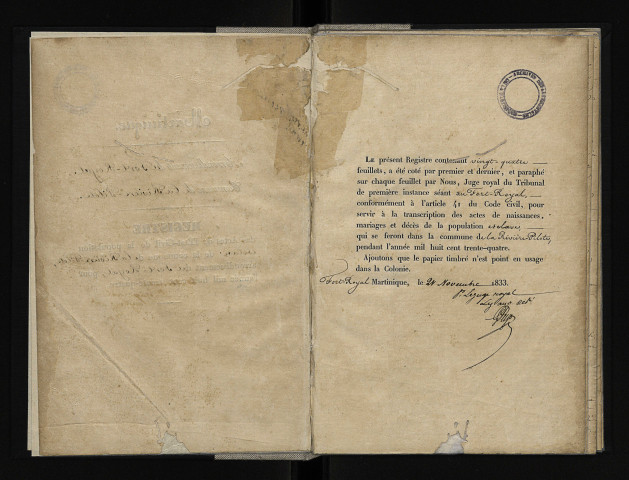 Le présent Registre contenant vingt-quatre
feuillets, a été coté par premier et dernier, et paraphé
sur chaque feuillet par Nous, Juge royal du Tribunal
de première instance séant au Fort-Royal,
conformément à l'article 41 du Code civil, pour
servir à la transcription des actes de naissances,
mariages et décès de la population esclave
qui se feront dans la commune de la Rivière Pilote,
pendant l'année mil huit cent trente-quatre.
Ajoutons que le papier timbré n'est point en usage
dans la Colonie.
Fort Royal Martinique, le 20 Novembre 1833.